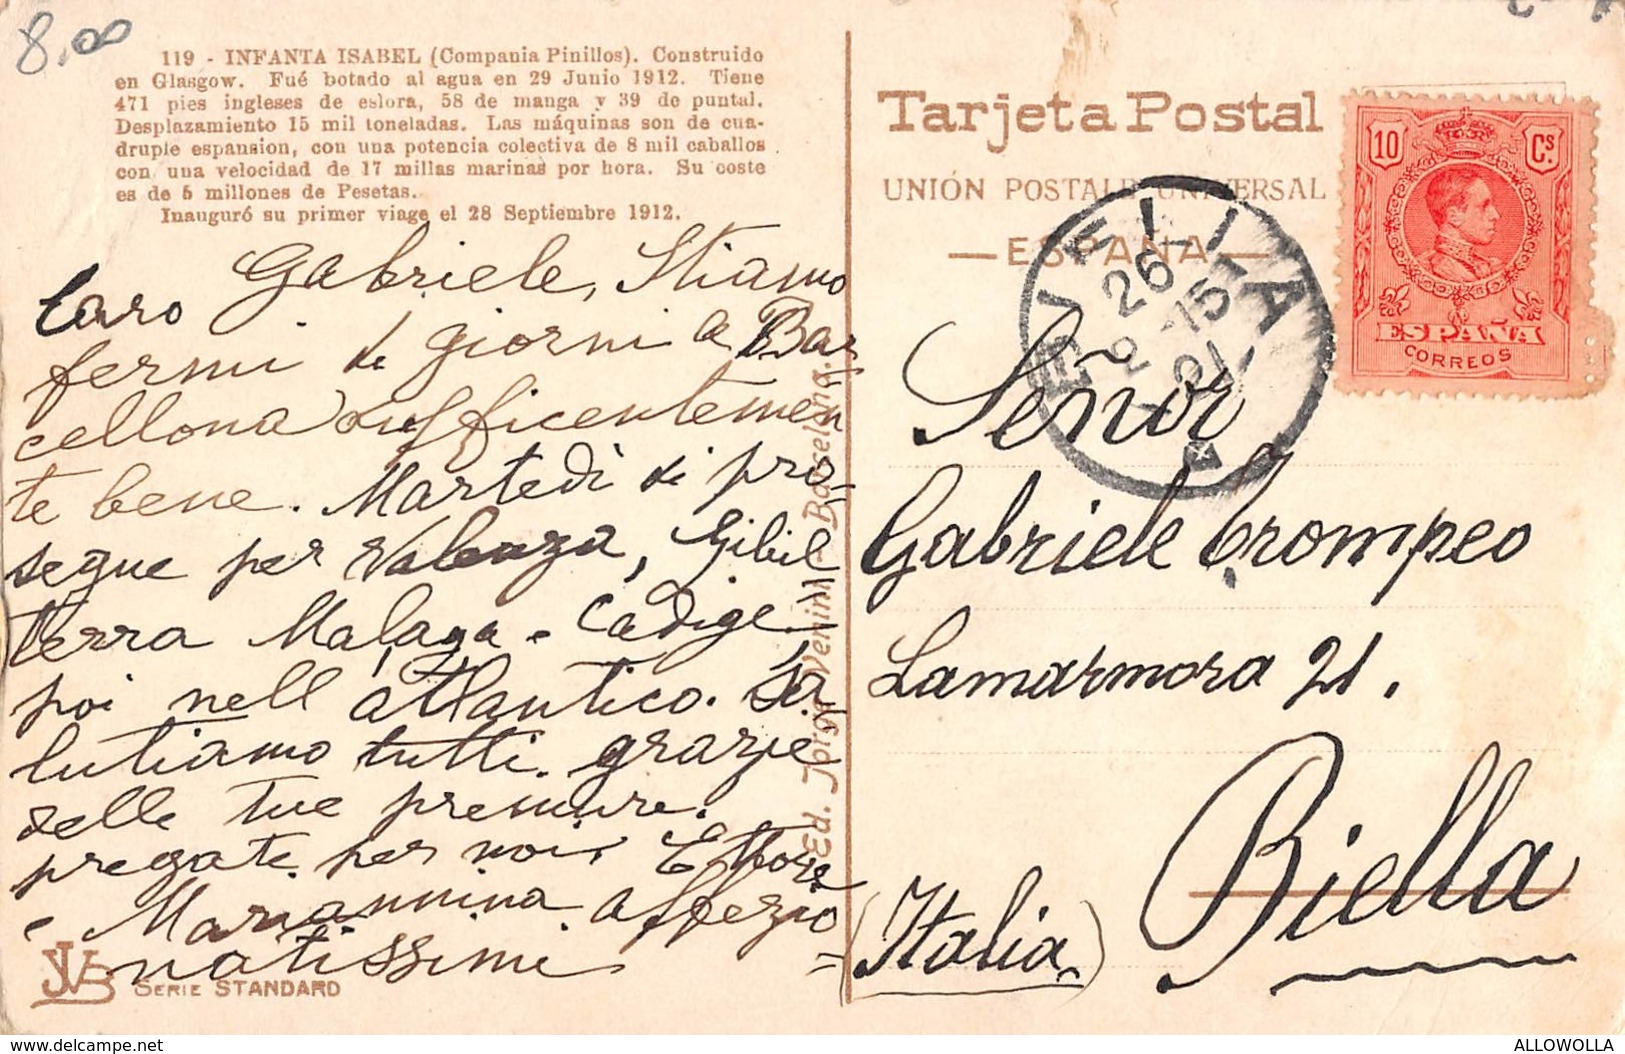 8,00
119 - INFANTA ISABEL (Compania Pinillos). Construido
en Glasgow. Fué botado al agua en 29 Junio 1912. Tiene
471 pies ingleses de eslora, 58 de manga y 39 de puntal.
Desplazamiento 15 mil toneladas. Las máquinas son de cua-
druple espansion, con una potencia colectiva de 8 mil caballos
con una velocidad de 17 millas marinas por hora. Su coste
es de 5 millones de Pesetas.
Inauguró su primer viage el 28 Septiembre 1912.
Caro Gabriele, Stiamo
fermi di giorni a Bar
cellona sufficentemen
te bene. Martedì si pro-
segue per Valenza, Gibil
terra Malaga e Cadige
poi nell atlantico. Sa-
lutiamo tutti. grazie
delle tue premure.
pregate per noi. Ettore
e Mariannina affezio
natissimi
JVB
SERIE STANDARD
Ed. Jorge Venini - Barcelona.
Tarjeta Postal
UNIÓN POSTALE UNIVERSAL
— ESPAÑA —
BIELLA
26
2-15
21
10 Cs.
ESPAÑA
CORREOS
Señor
Gabriele Crompeo
Lamarmora 21.
Biella
(Italia)
delcampe.net
ALLOWOLLA